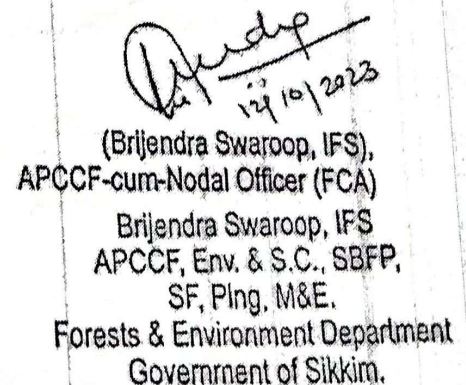 12/10/2023
(Brijendra Swaroop, IFS),
APCCF-cum-Nodal Officer (FCA)
Brijendra Swaroop, IFS
APCCF, Env. & S.C., SBFP,
SF, Plng, M&E.
Forests & Environment Department
Government of Sikkim.